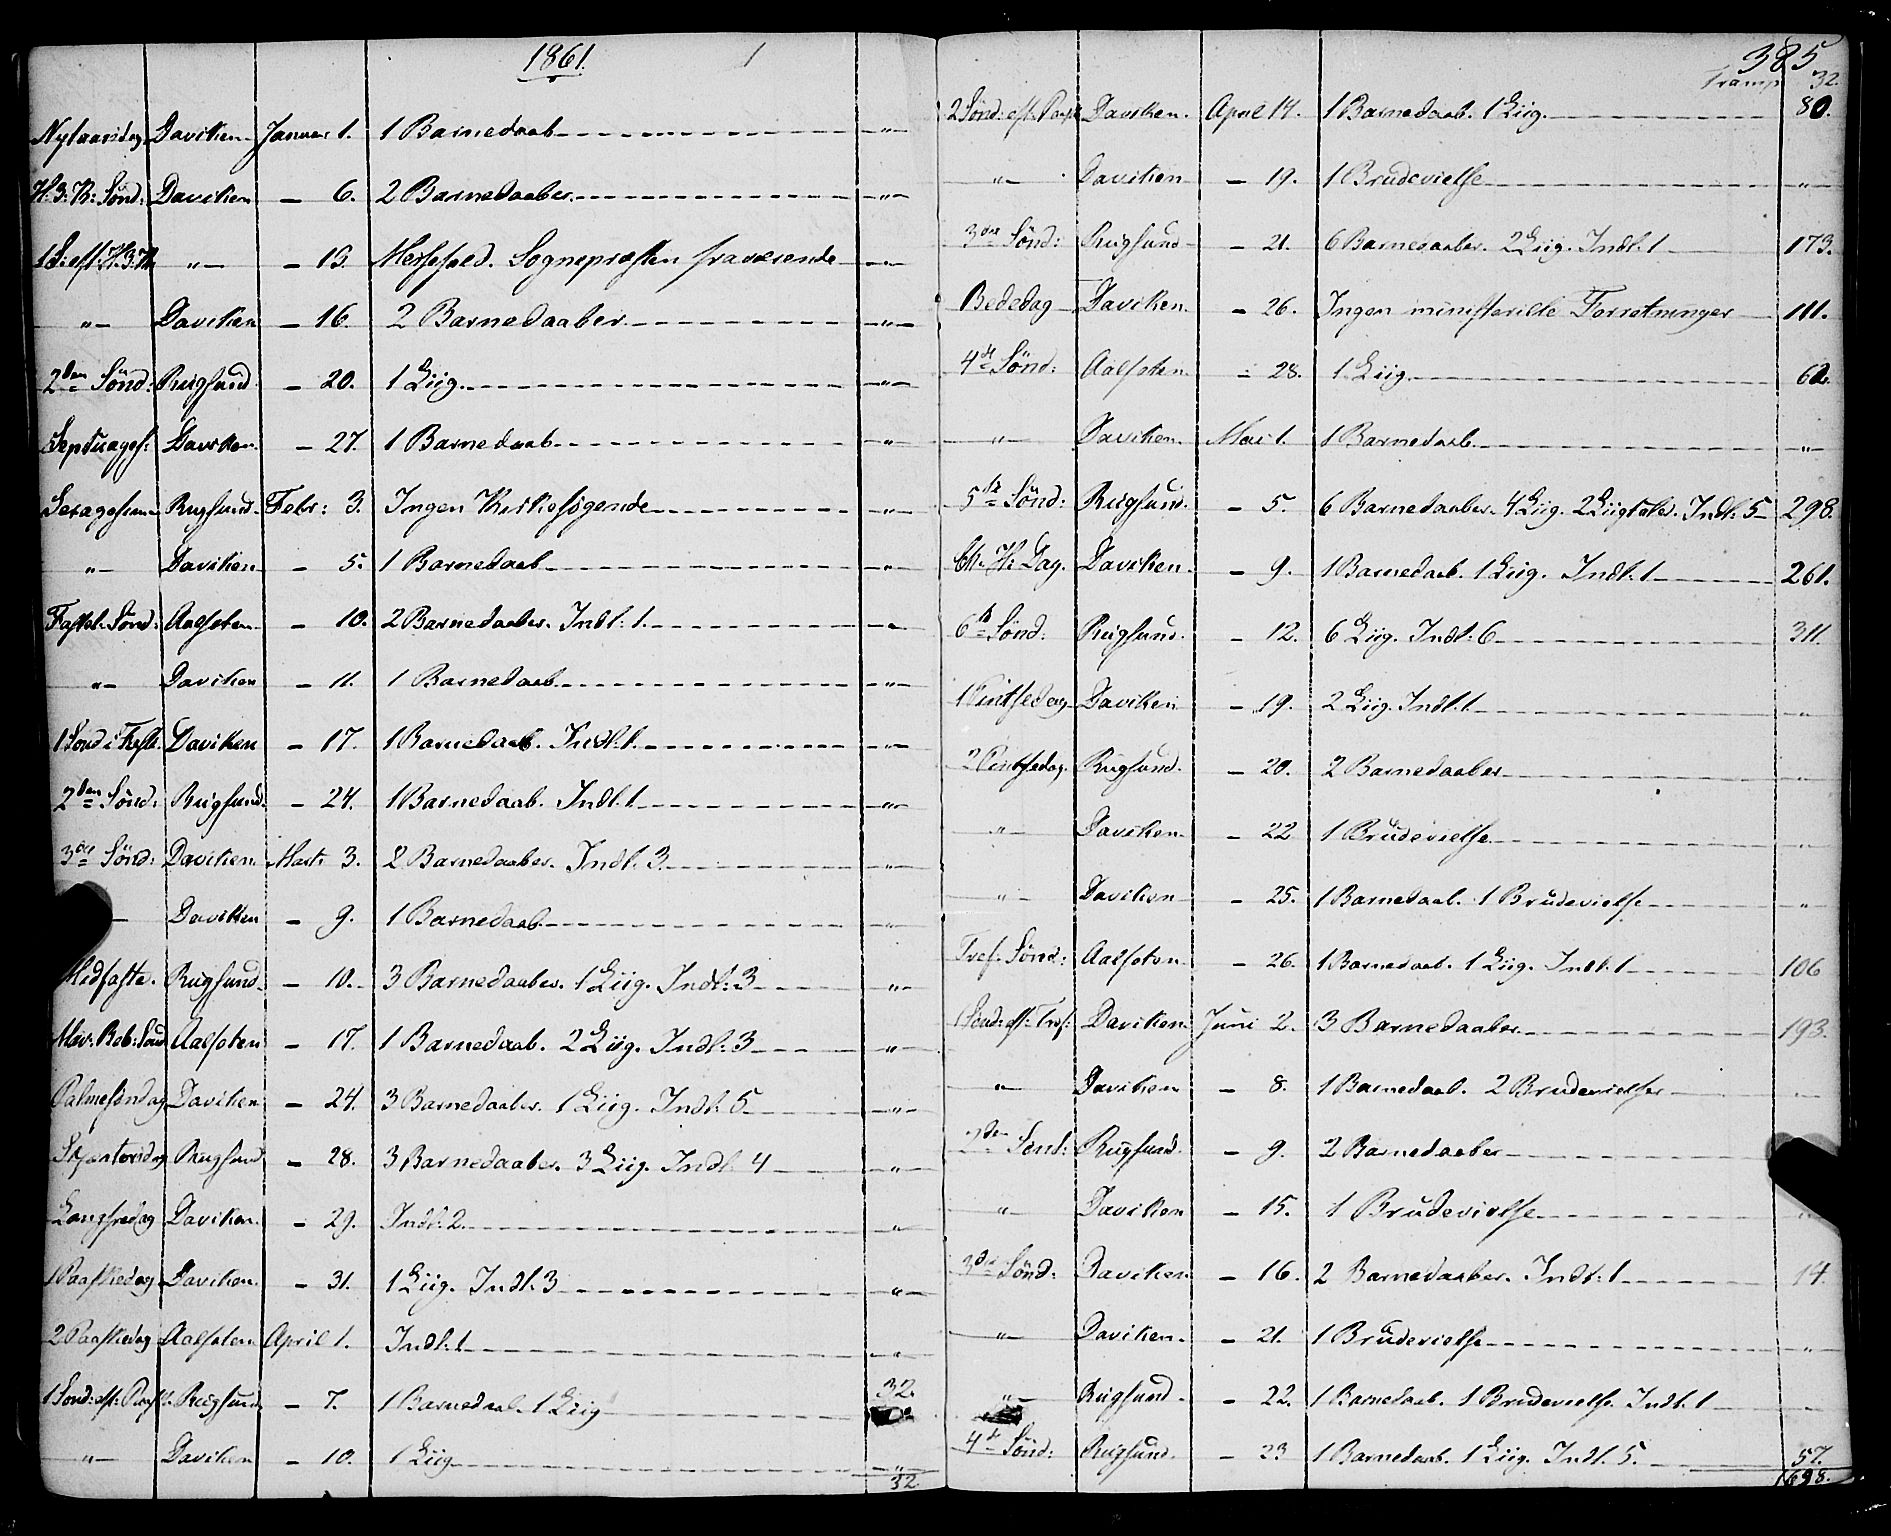 1861.
Nytaarsdag Daviken Januar 1. 1 Barnedaab „
H. 3. K: Sønd: Daviken – 6. 2 Barnedaaber „
1 S: eft: H. 3. K. „ – 13. Messefald. Sognepræsten fraværende „
„ Daviken – 16. 2 Barnedaaber „
2den Sønd: Rugsund – 20. 1 Liig. „
Septuages: Daviken – 27. 1 Barnedaab „
Sexagesima Rugsund Febr: 3. Ingen Kirkesøgende „
„ Daviken – 5. 1 Barnedaab „
Fastel: Sønd: Aalfoten – 10. 2 Barnedaaber. Indl: 1. „
„ Daviken – 11. 1 Barnedaab „
1 Sønd i Faste Daviken – 17. 1 Barnedaab. Indl: 1. „
2den Sønd: Rugsund. – 24. 1 Barnedaab. Indl: 1. „
3die Sønd: Daviken. Marts 3. 2 Barnedaaber. Indl: 3. „
– Daviken – 9. 1 Barnedaab „
Midfaste. Rugsund – 10. 3 Barnedaaber. 1 Liig. Indl: 3 „
Mar: Beb: Sønd Aalfoten – 17. 1 Barnedaab. 2 Liig. Indl: 3 „
Palmesøndag Daviken – 24. 3 Barnedaaber. 1 Liig. Indl: 5. „
Skjærtorsdag Rugsund – 28. 3 Barnedaaber. 3 Liig. Indl: 4 „
Langfredag Daviken. – 29. Indl: 2. „
1 Paaskedag Daviken. – 31. 1 Liig. Indl: 3 „
2 Paaskedag Aalfoten April 1. Indl: 1. „
1 Sønd: eft: Paask. Rugsund – 7. 1 Barnedaab. 1 Liig 32.
„ Daviken – 10. 1 Liig „
32
385
Transp 32.
2 Sønd: eft. Paask Daviken. April 14. 1 Barnedaab. 1 Liig. 80.
„ Daviken – 19. 1 Brudevielse „
3die Sønd: Rugsund – 21. 6 Barnedaaber. 2 Liig. Indl: 1 173.
Bededag Daviken. – 26. Ingen ministerielle Forretninger 111.
4de Sønd: Aalfoten – 28. 1 Liig.
„ Daviken. Mai 1. 1 Barnedaab „
5te Sønd: Rugsund. – 5. 6 Barnedaaber. 4 Liig. 2 Liigtaler. Indl: 5 298.
Ch. H. Dag. Daviken. – 9. 1 Barnedaab. 1 Liig. Indl: 1 261.
6te Sønd: Rugsund. – 12. 6 Liig. Indl: 6 311.
1 Pintsedag Daviken – 19. 2 Liig. Indl: 1 „
2 Pintsedag. Rugsund. – 20. 2 Barnedaaber „
„ Daviken – 22 1 Brudevielse „
„ Daviken – 25. 1 Barnedaab. 1 Brudevielse „
Tref. Sønd: Aalfoten – 26. 1 Barnedaab. 1 Liig. Indl: 1 106
1 Sønd: eft: Tref: Daviken Juni 2. 3 Barnedaaber 193.
„ Daviken – 8. 1 Barnedaab. 2 Brudevielser „
2den Sønd: Rugsund. – 9. 2 Barnedaaber
„ Daviken – 15. 1 Brudevielse „
3die Sønd: Daviken – 16. 2 Barnedaaber. Indl: 1 14.
„ Daviken. – 21. 1 Brudevielse „
„ Rugsund. – 22. 1 Barnedaab. 1 Brudevielse. Indl: 1 „
4de Sønd: Rugsund. – 23 1 Barnedaab. 1 Liig. Indl: 5. 57.
1698.